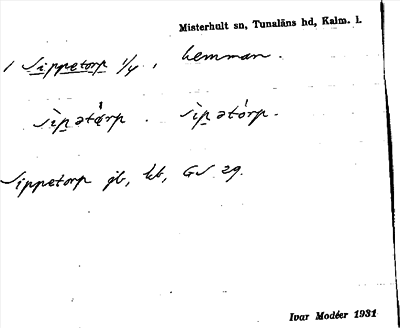 Misterhult sn, Tunaläns hd, Kalm. l.
1 Sippetorp 1/4, hemman.
sìpətórp. sìpətórp.
Sippetorp jb, kb, GS 29.
Ivar Modéer 1931